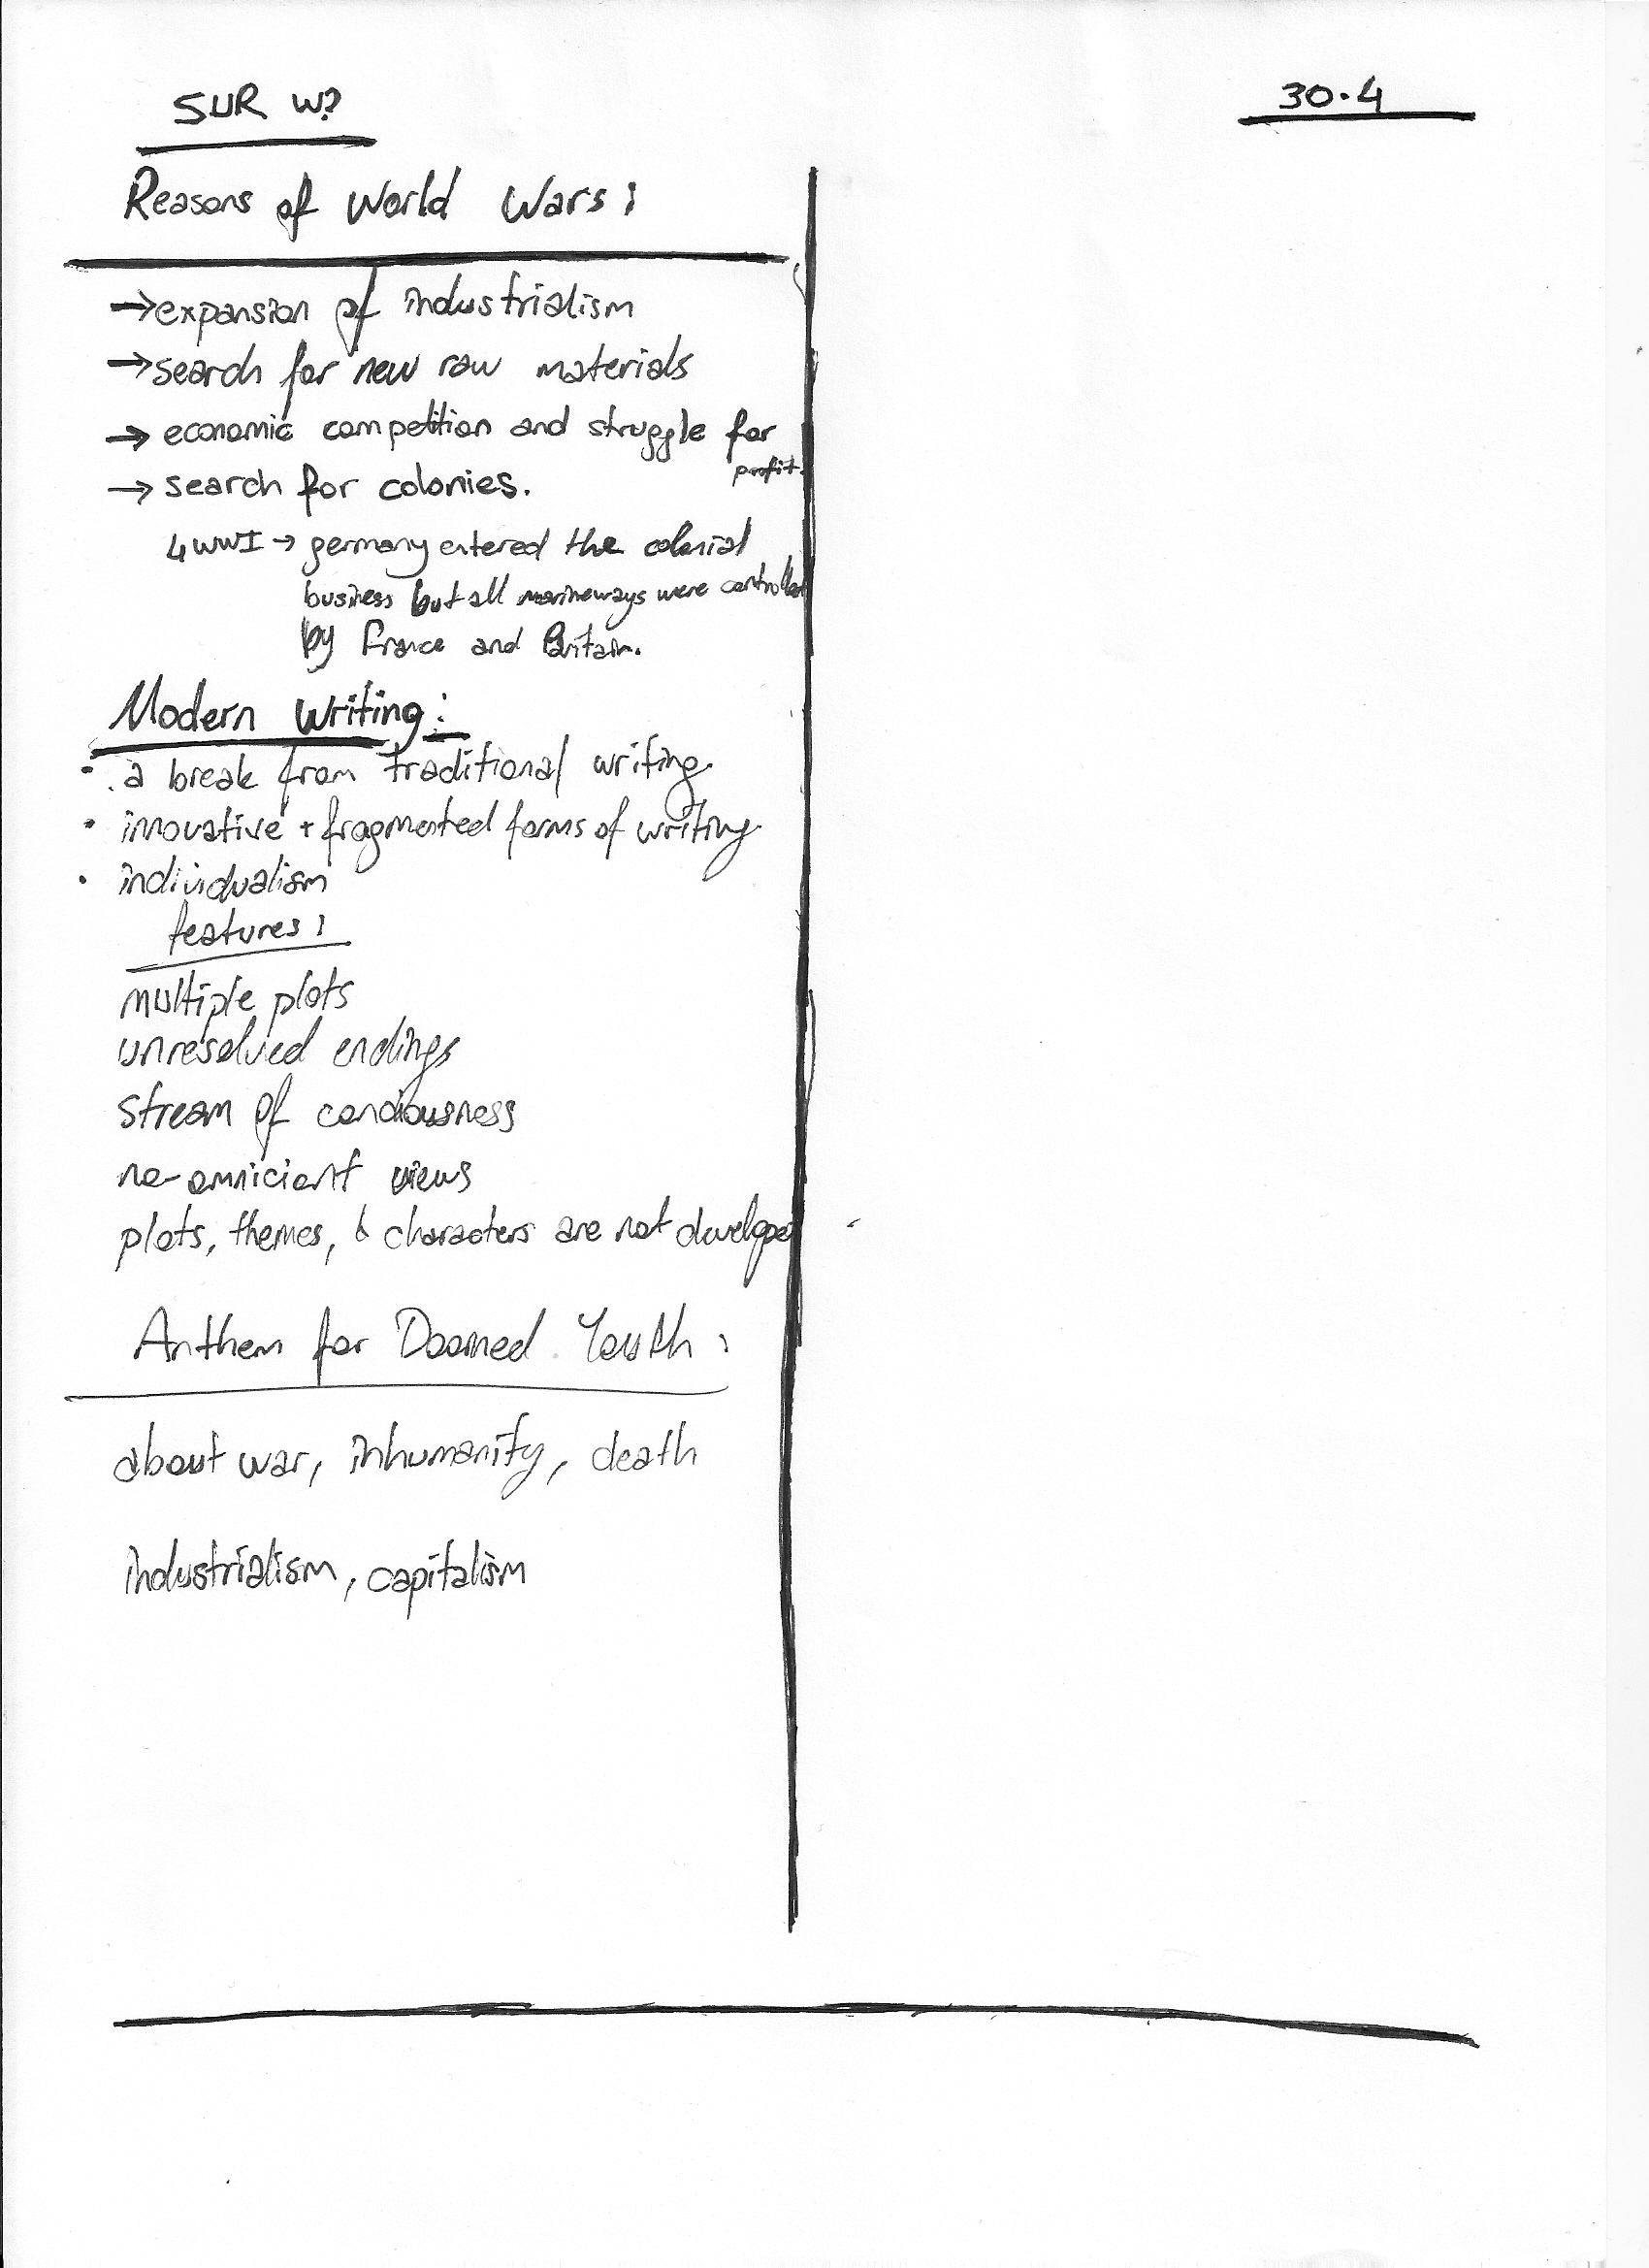 SUR W?
30.4
Reasons of World Wars:
→ expansion of industrialism
→ search for new raw materials
→ economic competition and struggle for
profit.
→ search for colonies.
↳ WWI → germany entered the colonial
business but all marineways were controlled
by France and Britain.
Modern Writing:
• a break from traditional writing.
• innovative + fragmented forms of writing.
• individualism
features:
multiple plots
unresolved endings
stream of conciousness
no-omnicient views
plots, themes, & characters are not developed
Anthem for Doomed Youth:
about war, inhumanity, death
industrialism, capitalism